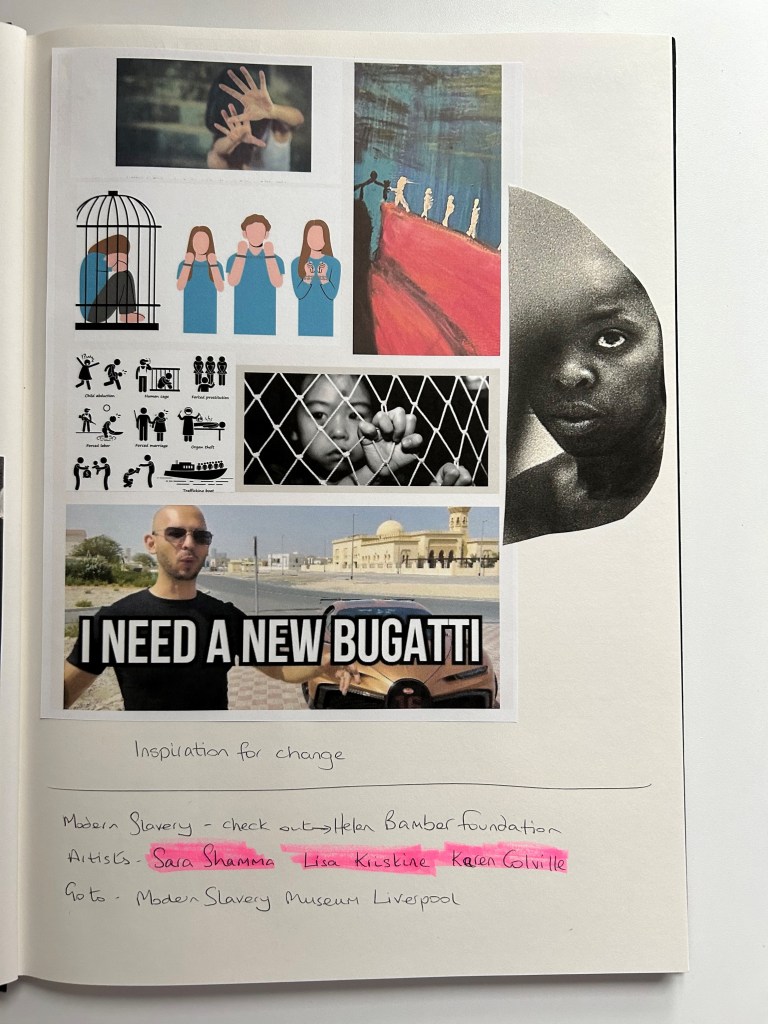 Child abduction
Human cage
Forced prostitution
Forced labor
Forced marriage
Organ theft
Trafficking boat
I NEED A NEW BUGATTI
Inspiration for change
Modern Slavery - check out→Helen Bamber foundation
Artists - Sara Shamma Lisa Kriskine Karen Colville
Go to - Modern Slavery Museum Liverpool